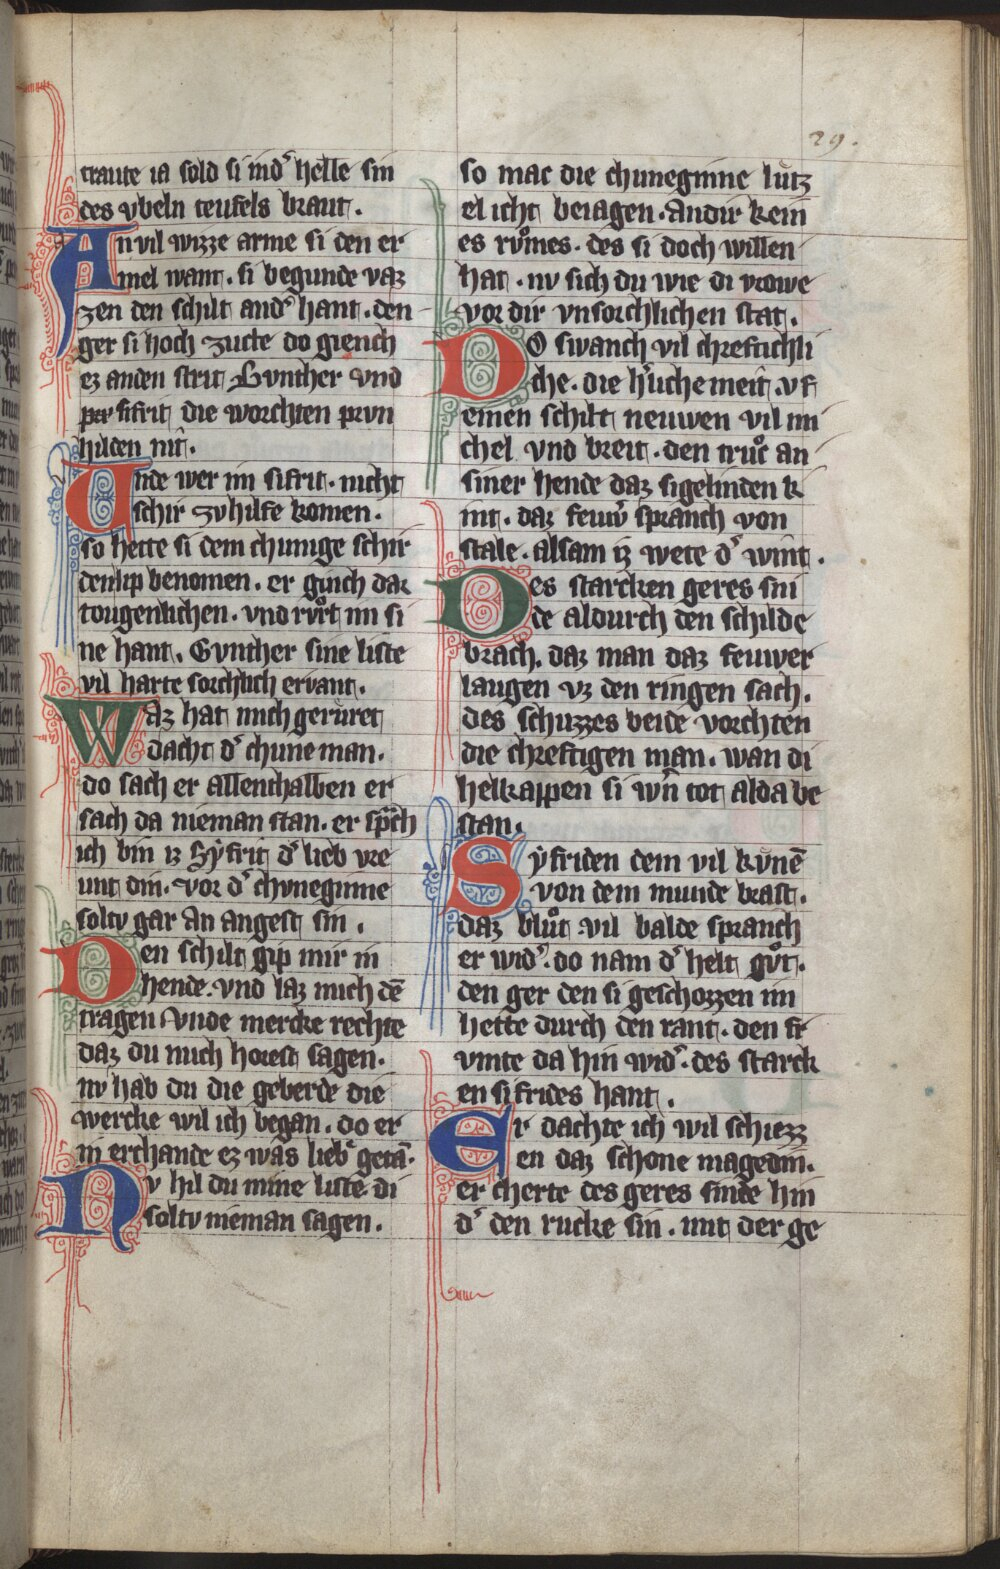 29.
traute ia sold si indˢ helle sin
des vbeln teufels braut.
An vil wizze arme si den er
mel want. si begunde vaz
zen den schilt andˢ hant. den
ger si hoch zucte do giench
ez anden strit Gvnther vnd
sifrit die worchten prvn
hilden nit.
Unde wer im sifrit. nicht
schir zvhilfe komen.
so hette si dem chunige schir
den lip benomen. er ginch dar
tougenlichen. vnd rvͦrt im si
ne hant. Gvnther sine liste
vil harte sorchlich ervant.
Waz hat mich gerůret
dacht dˢ chune man.
do sach er allenthalben er
sach da nieman stan. er sp̄ch
ich bin iz Sẏfrit dˢ lieb vre
unt din. vor dˢ chvneginne
soltv gar an angest sin.
Den schilt gip mir in
hende. vnd laz mich dē
tragen vnde mercke rechte
daz du mich horest sagen.
nv hab du die geberde die
wercke wil ich began. do er
in erchande ez was liebˢ getā.
Nv hil du mine liste di
soltv nieman sagen.
so mac die chuneginne lůtz
el icht beiagen. andir kein
es rvͦmes. des si doch willen
hat. nv sich du wie di vrowe
vor dir vnsorchlichen stat.
DO swanch vil chreftichli
che. die hˢliche meit. vf
einen schilt neuwen vil mi
chel vnd breit. den truͦc an
siner hende daz sigelinden k
int. daz feuwˢ spranch von
stale. alsam iz wete dˢ wint.
Des starcken geres sni
de aldurch den schilde
brach. daz man daz feuwer
laugen vz den ringen sach.
des schuzzes beide vorchten
die chreftigen man. wan di
helkappen si wˢn tot alda be
stan.
Sẏfriden dem vil kvnē
von dem munde brast.
daz bluͦt vil balde spranch
er widˢ. do nam dˢ helt gvͦt.
den ger den si geschozzen im
hette durch den rant. den fr
vmte da hin widˢ. des starck
en sifrides hant.
Er dachte ich wil schiezz
en daz schone magedin.
er cherte des geres sinde hin
dˢ den rucke sin. mit der ge